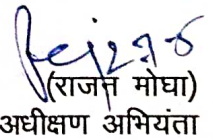 (राजन मोघा)
अधीक्षण अभियंता